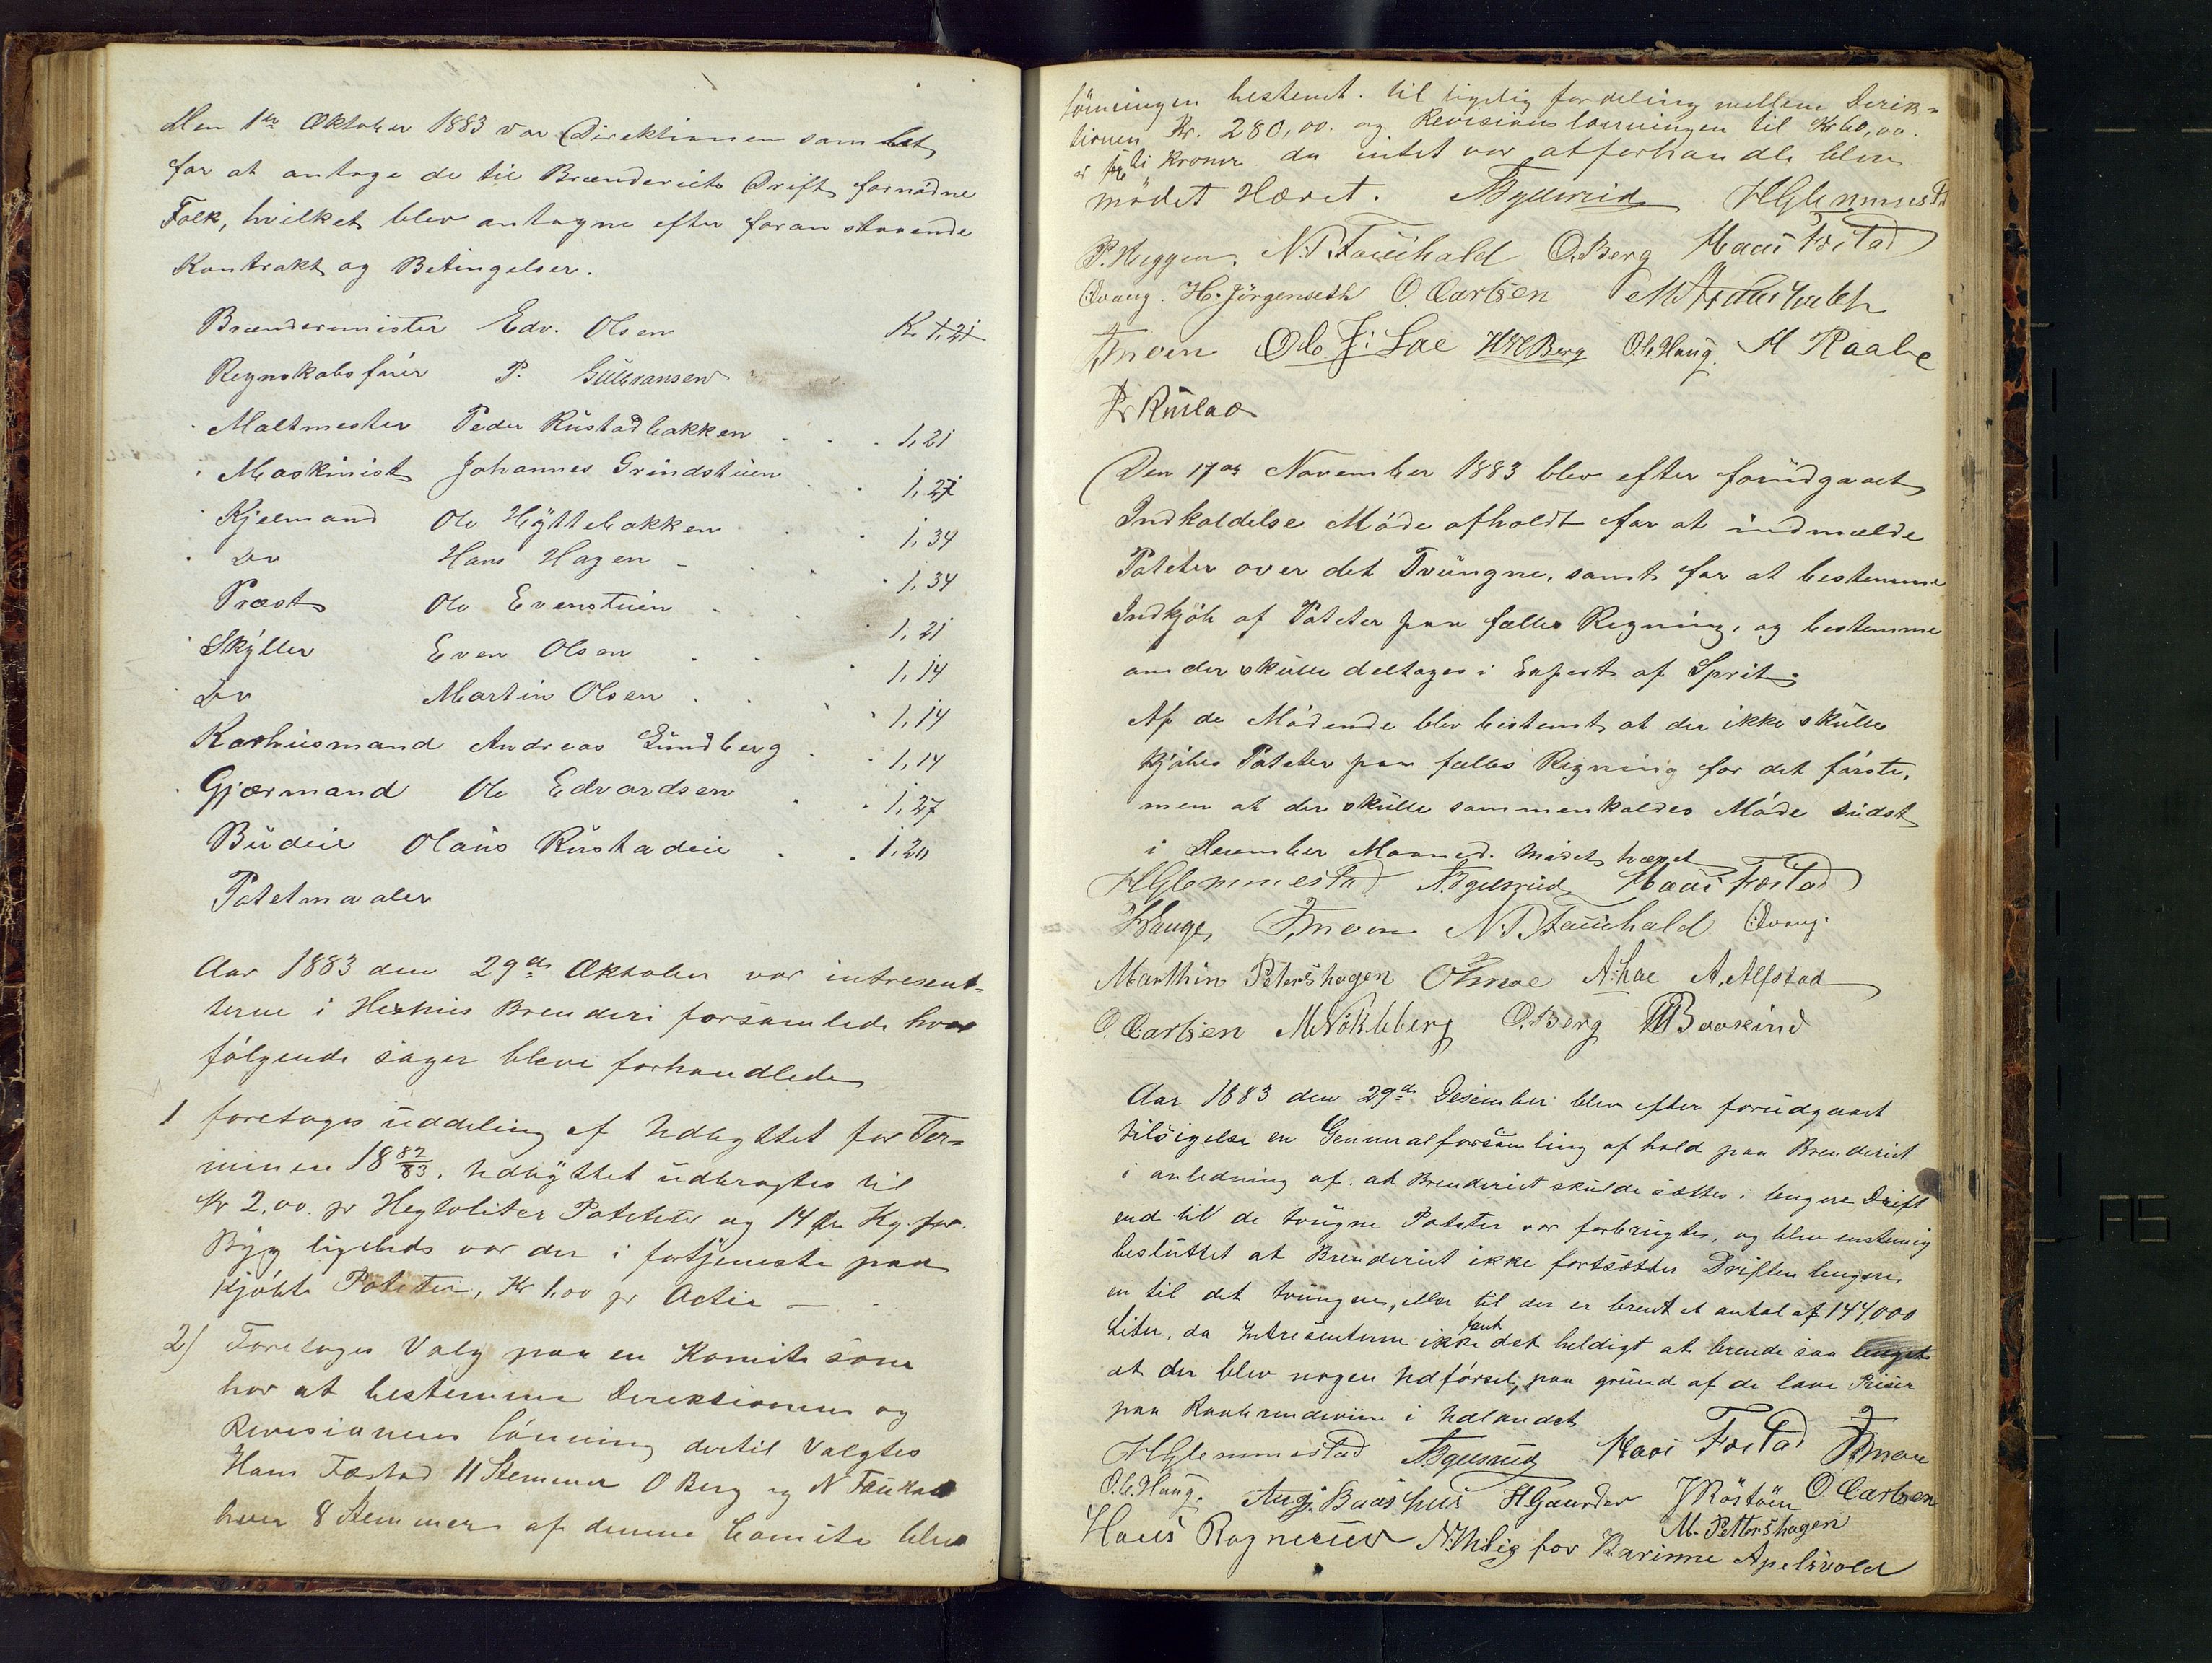 Den 1ste Oktober 1883 var Direktionen samlet
for at antage de til Brænderiets Drift fornødne
Folk, hvilket blev antagne efter foranstaaende
Kontrakt og Betingelser.
Brændermister Edv. Olsen K. 1,21
Regnskabsfører P. Gulbransen
Maltmester Peder Rustadbakken 1,21
Maskinist Johannes Grindstuen 1,27
Kjelmand Ole Hÿttebakken 1,34
Do Hans Hagen 1,34
Præst Ole Evenstuen 1,21
Skÿller Even Olsen 1,14
Do Martin Olsen 1,14
Karhusmand Andreas Lundberg 1,14
Gjærmand Ole Edvardsen 1,27
Budeie Olaus Rustadeie 1,20
Potetmaaler
Aar 1883 den 29de Oktober var intresent-
terne i Hexhus Brenderi forsamlede hvor
følgende sager bleve forhandlede
1 foretoges uddeling af Udbyttet for Ter-
minen 18 82/83. Udbÿttet udbragtes til
Kr 2,00. pr Hegtoliter Poteter og 14 Øre Kg. for
Bÿg ligeleds var der i fortjeneste paa
kjøbte Poteter, Kr 1,00 pr Actie —
2) Foretoges Valg paa en Komite som
har at bestemme Direktionens og
Revisionens lønning dertil Valgtes
Hans Fæstad 11 Stemmer O Berg og N Faukald
hver 8 Stemmer af denne Comite blev
lønningen bestemt. til ligelig fordeling mellem Direk-
tionen Kr. 280,00. og Revisionslønningen til Kr 60,00.
kroner da intet var at forhandle blev
mødet Hævet. H Glemmestad
P. Heggen, N. P. Fauchald O. Berg Haas Fæstad
Qvang. H. Jørgenseth O. Carlsen
Ole J. Lae HH Berg O. C. Haug. M Raabe
Den 17de November 1883 blev efter forudgaaet
Indkaldelse Møde afholdt for at indmælde
Poteter over det Tvungne, samt for at bestemme
Indkjøb af Poteter paa fælles Regning, og bestemme
om der skulle deltages i Export af Sprit.
Af de Mødende blev bestemt at der ikke skulle
kjøbes Poteter paa fælles Regning for det første,
men at der skulle sammenkaldes Møde sidst
i Desember Maaned. Mødet hævet
H Glemmestad Haas Fæstad
Hauge, N. P. Fauchald Qvang.
Marthin Petershagen A. Lae A. Alfstad
O. Carlsen M Nökleberg O. Berg
Aar 1883 den 29de Desember blev efter forudgaaet
tilsigelse en Gennralforsamling af hold paa Brenderiet
i anledning af. at Brenderiet skulde sættes i lengere Drift
end til de tvugne Poteter var forbrugte, og blev enstemig
besluttet at Brenderiet ikke fortsætter Driften lengere
en til det tvungne, eller til der er brent et antal af 144,000
Liter, da Intresenterne ikke fant det heldigt at brende saa
at der blev nogen Udførsel, paa grund af de lave Priser
paa Raabrendeviin i Udlandet
H Glemmestad Haas Fæstad
O. C. Haug. Aug. Baashus H Gaarder J Röstöen O. Carlsen
M. Pettershagen
Hans Rognerud N. Thilig for Karinne Apelsvold